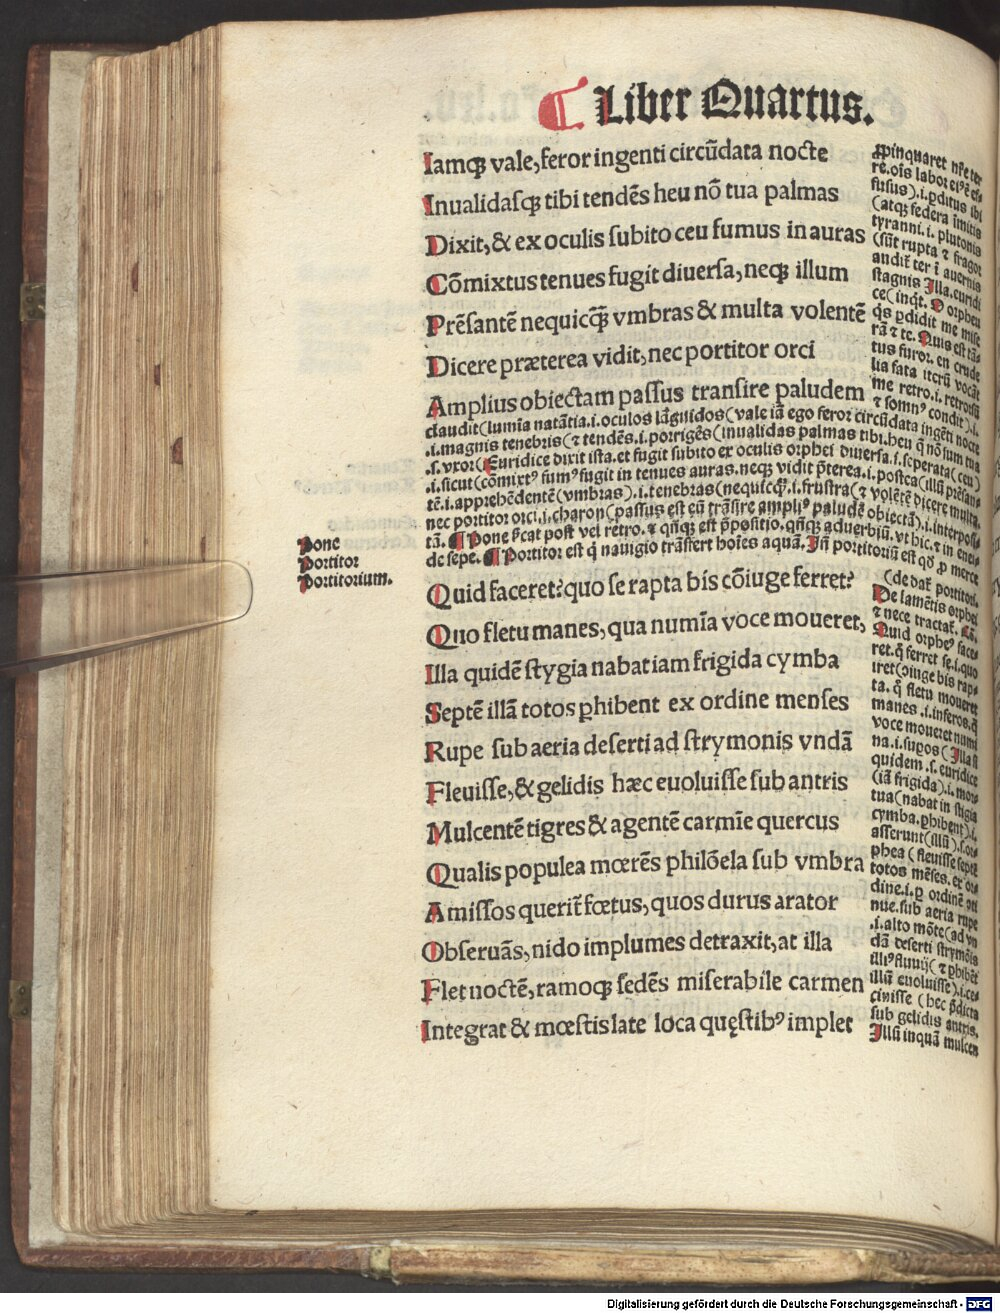 Liber Quartus.
Iamqꝫ vale, feror ingenti circũdata nocte
Inualidasqꝫ tibi tendẽs heu nõ tua palmas
Dixit, & ex oculis subito ceu fumus in auras
Cõmixtus tenues fugit diuersa, neqꝫ illum
Prẽsantẽ nequicqꝫ̃ vmbras & multa volentẽ
Dicere præterea vidit, nec portitor orci
Amplius obiectam passus transire paludem
ꝓpinquaret
re. oĩs labor
fusus).i. ꝑditus ibi
(atqꝫ federa ĩmitis
tyranni.i. plutonis
(sũt rupta ⁊ fragor
audit᷉ ter ĩ auernis
stagnis Illa.euridi
ce(inqt. O orpheu
qs ꝑdidit me mise
rã ⁊ te. Quis est tã⸗
tus furor. en crude
lia fata iterũ vocãt
me retro.i. retrorsũ
⁊ somnꝰ condit).i.
claudit(lumĩa natãtia.i.oculos lãguidos(vale iã ego feror circũdata ingẽti nocte
.i.magnis tenebris(⁊ tendẽs.i. porrigẽs(inualidas palmas tibi.heu q̃ nõ sum tua
.s.vxor(Euridice dixit ista.et fugit subito ex oculis orphei diuersa.i.seperata(ceu)
.i.sicut(cõmixtꝰ fumꝰ fugit in tenues auras.neqꝫ vidit p̃terea.i.postea(illũ prẽsan⸗
tẽ.i.apprehẽdentẽ(vmbras).i.tenebras(nequicqꝫ̃.i.frustra(⁊ volẽtẽ dicere multa.
nec portitor orci.i.charon(passus est eũ trãsire ampliꝰ paludẽ obiectã).i.interposi⸗
tã. ¶ Pone p̃cat post vel retro. ⁊ qñqꝫ est p̃positio.qñqꝫ aduerbiũ.vt hic.⁊ in enei⸗
de sepe. ¶ Portitor est q̃ nauigio trãsfert hoĩes ⁊ aquã. Iñ portitoriũ est qđ ꝓ merce
(de dat᷉ portitori.
Pone
Portitor
Portitorium.
Quid faceret? quo se rapta bis cõiuge ferret?
Quo fletu manes, qua numĩa voce moueret,
Illa quidẽ stygia nabat iam frigida cymba
Septẽ illã totos ꝑhibent ex ordine menses
Rupe sub aeria deserti ad strymonis vndã
Fleuisse, & gelidis hæc euoluisse sub antris
Mulcentẽ tigres & agentẽ carmĩe quercus
Qualis populea mœrẽs philõela sub vmbra
Amissos querit᷉ fœtus, quos durus arator
Obseruãs, nido implumes detraxit, at illa
Flet noctẽ, ramoqꝫ sedẽs miserabile carmen
Integrat & mœstis late loca quęstibꝰ implet
De lamẽtis orphei
⁊ nece tractat᷉.
Quid orpheꝰ face⸗
ret. q̃ ferret se.i.quo
iret(cõiuge bis rap⸗
ta. q̃ fletu moueret
manes .i.inferos. q̃
voce moueret numi
na.i.suꝑos (Illa st
quidem .s. euridice
(iã frigida).i. mor⸗
tua(nabat in stigia
cymba. ꝑhibent).i.
asserunt(illũ).s.or⸗
phea (fleuisse septẽ
totos mẽses. ex or⸗
dine.i. ꝑ ordinẽ
nue.sub aeria rupe
.i. alto mõte(ad vn
dã deserti strymõis
illiꝰ fluuij(⁊ ꝑhibẽt
illũ euoluisse).i.ce⸗
cinisse (hec p̃dicta
sub gelidis antris.
Illũ inquã mulcen
Digitalisierung gefördert durch die Deutsche Forschungsgemeinschaft - DFG